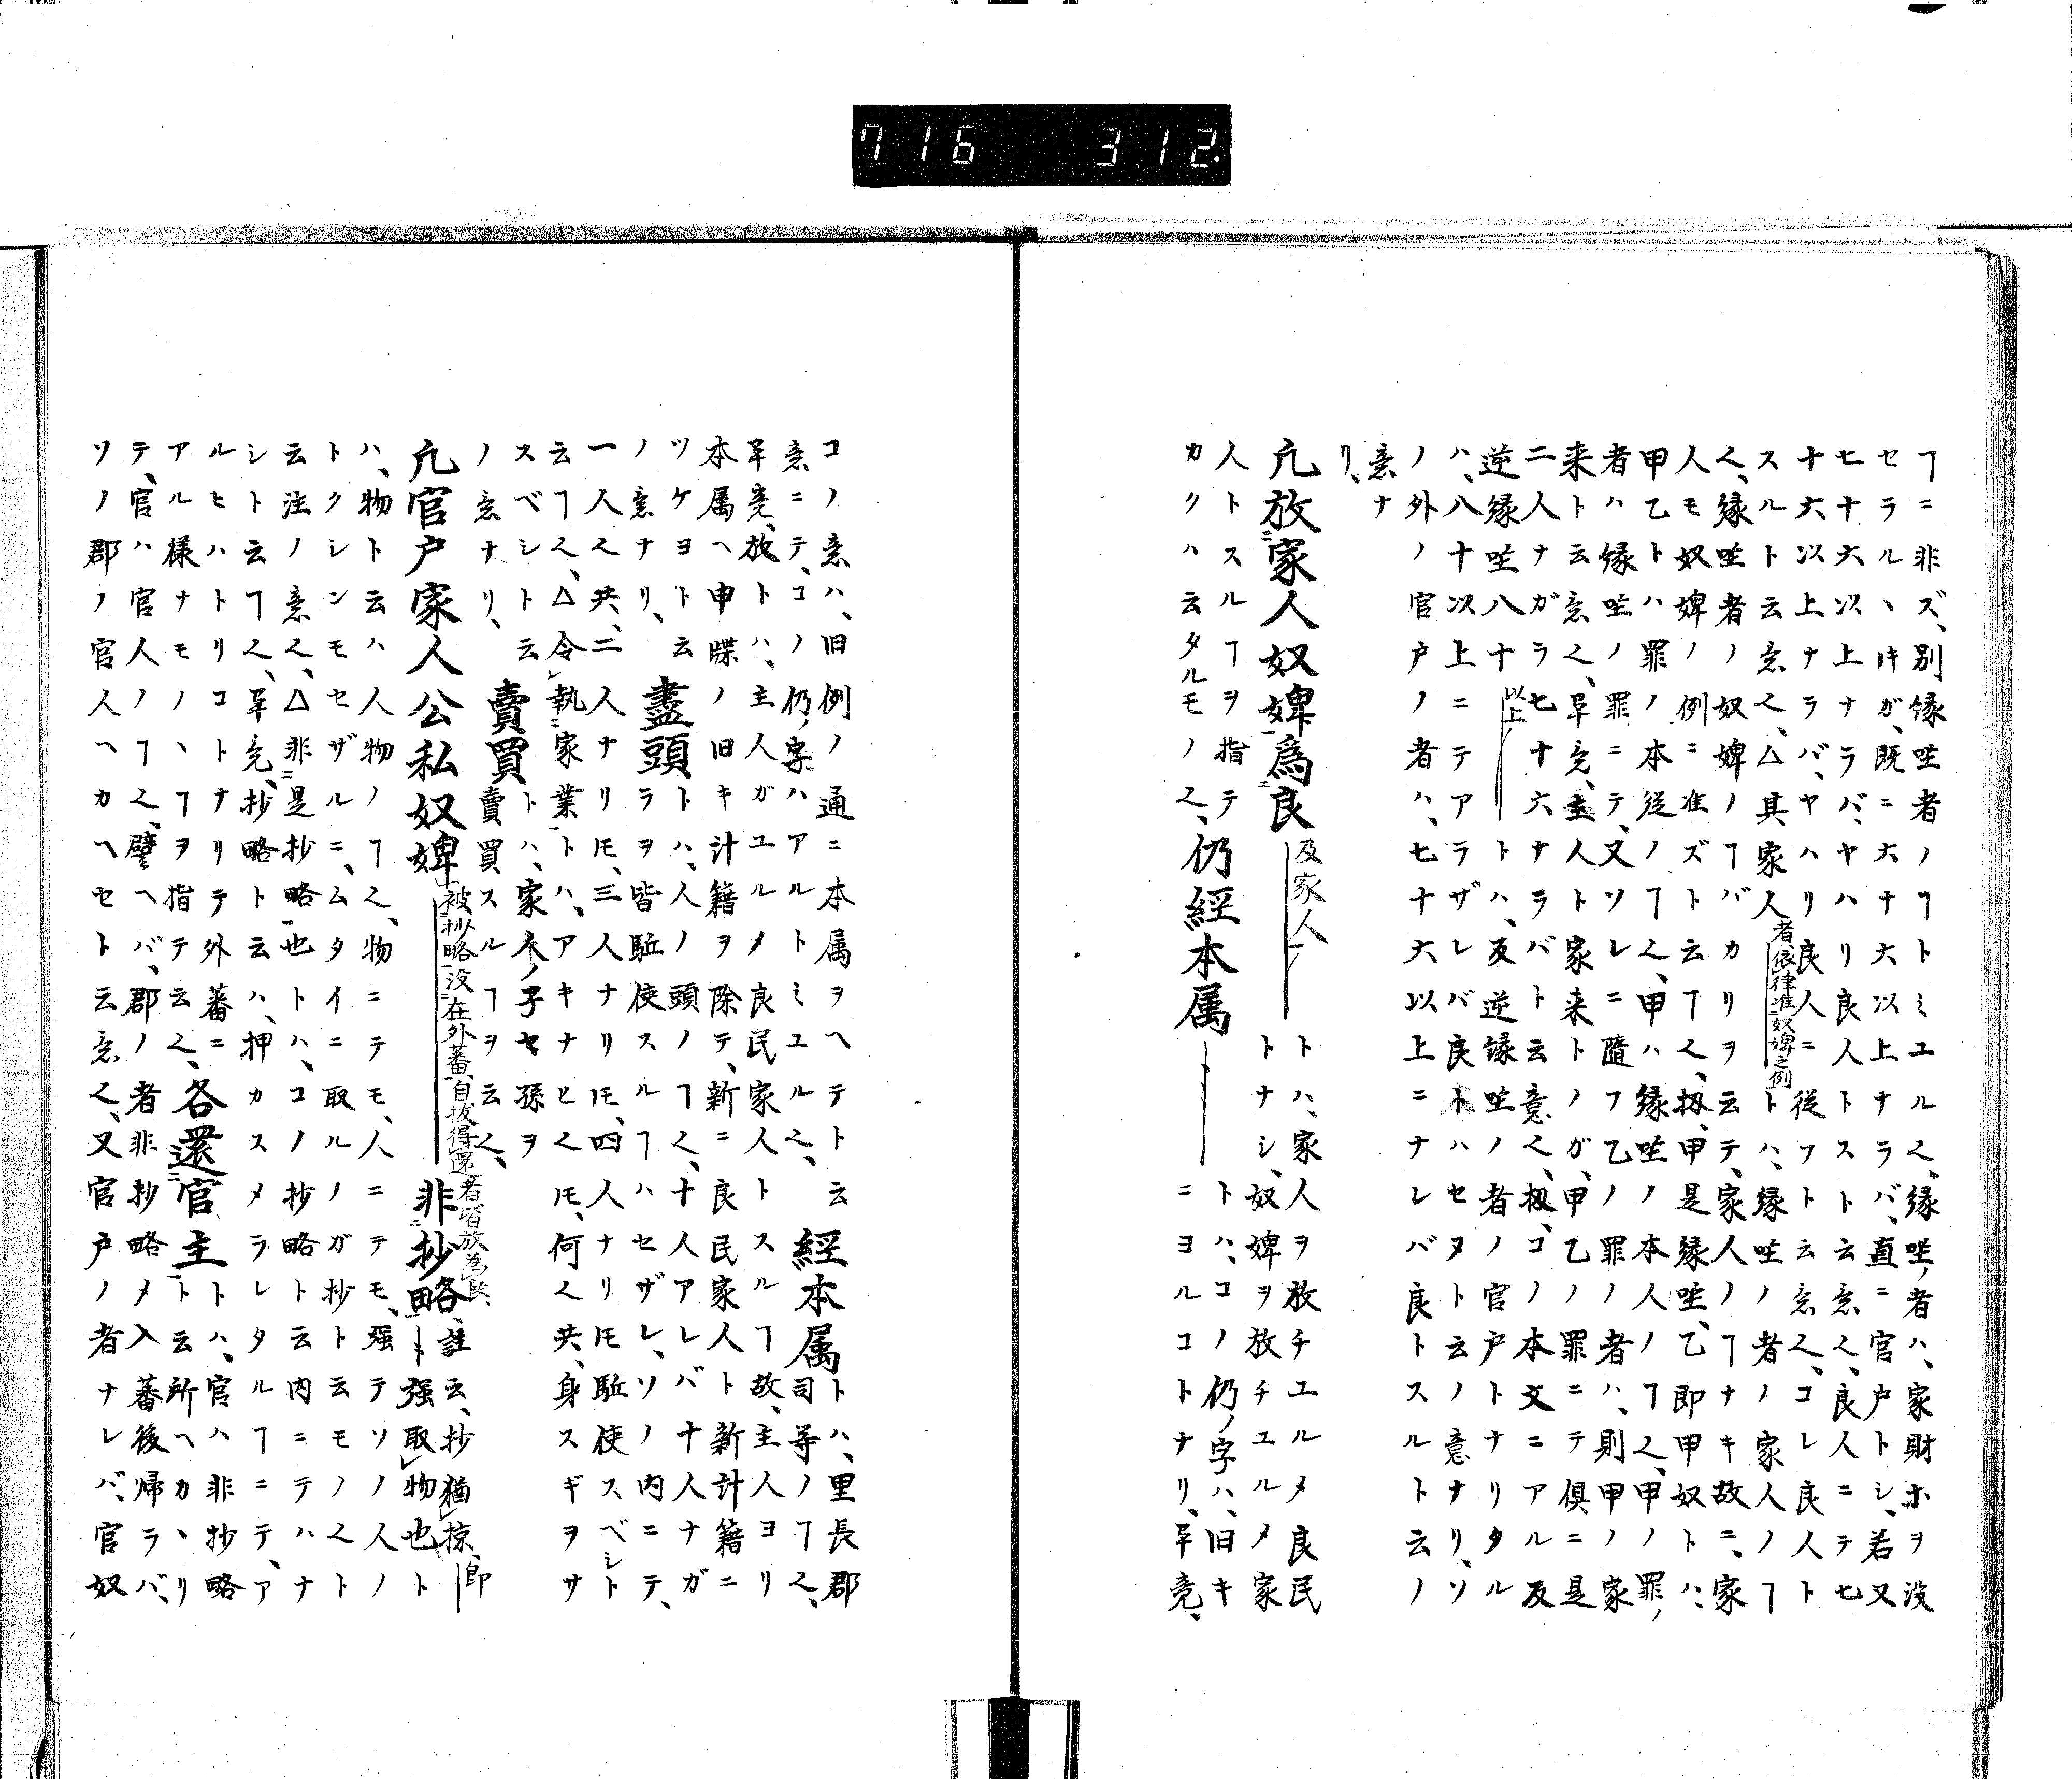 716 312.
ヿニ非ズ、別縁坐者ノヿトミユルく、縁坐ノ者ハ、家財ホヲ没
セラルヽ𪜈ガ、既ニ六ナ大以上ナラバ、直ニ官戸トシ、若又
七十六以上ナラバ、ヤハリ良人トスト云意く、良人ニテ七
十六以上ナラバ、ヤハリ良人ニ従フト云意く、コレ良人ト
スルト云意く、△其家人者、依律准奴婢之例トハ、縁坐ノ者ノ家人ノヿ
く、縁坐者ノ奴婢ノヿバカリヲ云テ、家人ノヿナキ故ニ、家
人モ奴婢ノ例ニ准ズト云ヿく、扨、甲是縁坐、乙即甲奴トハ、
甲乙トハ罪ノ本従ノヿく、甲ハ縁坐ノ本人ノヿく、甲ノ罪ノ
者ハ縁坐ノ罪ニテ、又ソレニ隨フ乙ノ罪ノ者ハ、則甲ノ家
来ト云意く、畢竟、主人ト家来トノガ、甲乙ノ罪ニテ倶ニ是
二人ナガラ七十六ナラバト云意く、扨、コノ本文ニアル及
逆縁坐八十以上ノトハ、反逆縁坐ノ者ノ官戸トナリタル
ハ、八十以上ニテアラザレバ良トハセヌト云ノ意ナリ、ソ
ノ外ノ官戸ノ者ハ、七十六以上ニナレバ良トスルト云ノ
意ナ
リ、
凢放家人奴婢爲良及家人トハ、家人ヲ放チユルメ良民
トナシ、奴婢ヲ放チユルメ家
人トスルヿヲ指テく、仍經本属トハ、コノ仍ノ字ハ、旧キ
カクハ云タルモノく、ニヨルコトナリ、畢竟、
コノ意ハ、旧例ノ通ニ本属ヲヘテト云經本属トハ、里長郡
意ニテ、コノ仍ノ字ハアルトミユルく、司等ノヿく、
畢竟、放トハ、主人ガユルメ良民家人トスルヿ故、主人ヨリ
本属ヘ申牒ノ旧キ計籍ヲ除テ、新ニ良民家人ト新計籍ニ
ツケヨト云盡頭トハ、人ノ頭ノヿく、十人アレバ十人ナガ
ノ意ナリ、ラヲ皆駈使スルヿハセザレ、ソノ内ニテ、
一人く共、二人ナリ𪜈、三人ナリ𪜈、四人ナリ𪜈駈使スベシト
云ヿく、△令執家業トハ、アキナヒく𪜈、何く共、身スギヲサ
スベシト云賣買トハ、家人ノ子セ孫ヲ
ノ意ナリ、賣買スルヿヲ云く、
凢官户家人公私奴婢被抄略没在外蕃、自拔得還者皆放為良、非抄略註云、抄猶掠、即
ト强取物也ト
ハ、物ト云ハ人物ノヿく、物ニテモ、人ニテモ、强テソノ人ノ
トクシンモセザルニ、ムタイニ取ルノガ抄ト云モノくト
云注ノ意く、△非是抄略也トハ、コノ抄略ト云内ニテハナ
シト云ヿく、畢竟、抄略ト云ハ、押カスメラレタルヿニテ、ア
ルヒハトリコトナリテ外蕃ニ各還官主トハ、官ハ非抄略
アル様ナモノヽヿヲ指テ云く、ト云所ヘカヽリ
テ、官ハ官人ノヿく、譬ヘバ、郡ノ者非抄略メ入蕃後帰ラバ、
ソノ郡ノ官人ヘカヘセト云意く、又官戸ノ者ナレバ、官奴